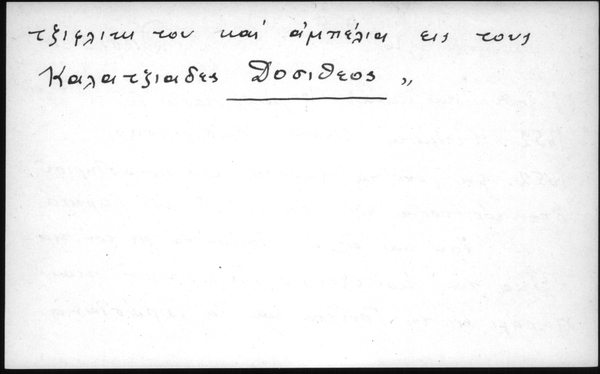 τζιφλικι του και ἀμπέλια εις τους
Καλατζιαδες Δοσιθεος "